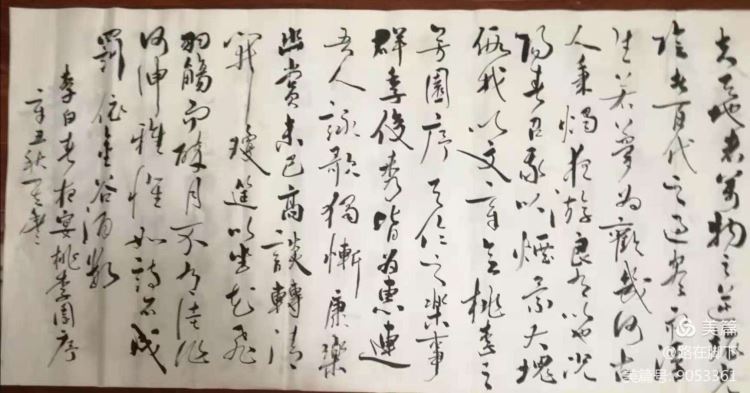 夫天地者萬物之逆旅
陰者百代之過客而浮
生若夢為歡幾何古
人秉燭夜游良有以也況
陽春召我以煙景大塊
假我以文章會桃李之
芳園序天伦之樂事
群季俊秀皆為惠連
吾人詠歌獨慚康樂
幽賞未已高談轉清
開瓊筵以坐花飛
羽觴而醉月不有佳作
何伸雅懷如詩不成
罰依金谷酒數
李白春夜宴桃李園序
辛丑秋
美篇
@路在脚下
美篇号: 9053361